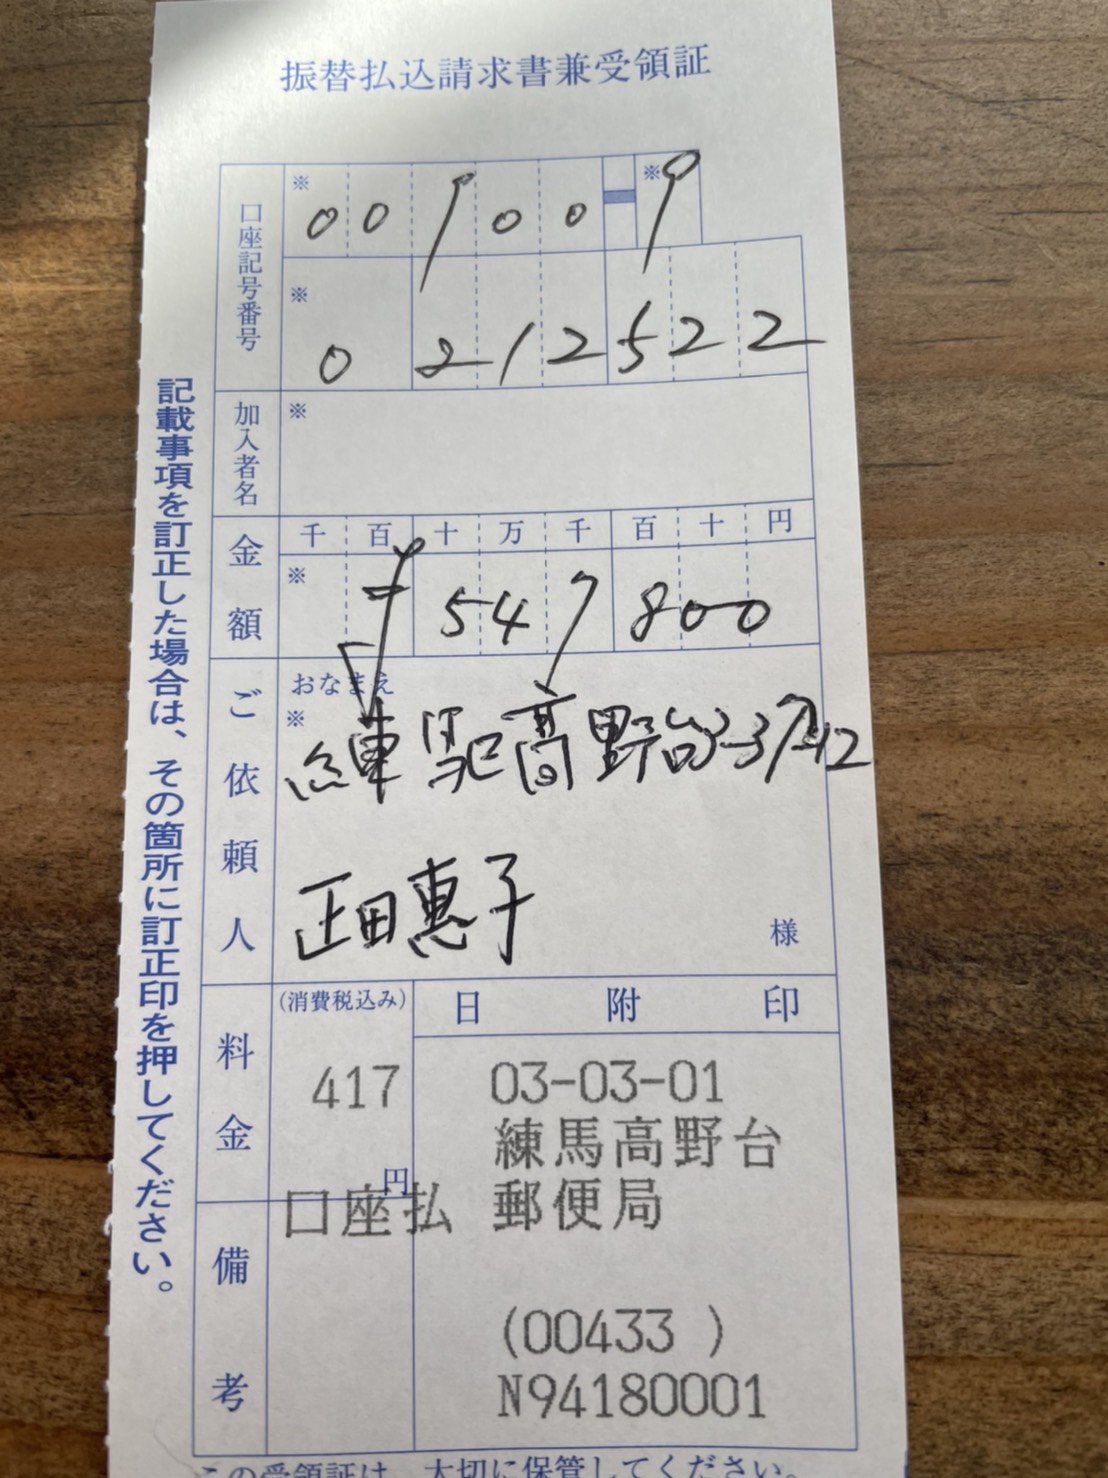 振替払込請求書兼受領証
口座記号番号
※
00100
※
9
※
0212522
加入者名
※
金額
千 百 十 万 千 百 十 円
※
¥547800
ご依頼人
おなまえ
※
練馬高野台
正田恵子
様
料金
(消費税込み)
417
円
日附印
03-03-01
練馬高野台
郵便局
備考
口座払
(00433 )
N94180001
記載事項を訂正した場合は、その箇所に訂正印を押してください。
この受領証は、大切に保管してください。